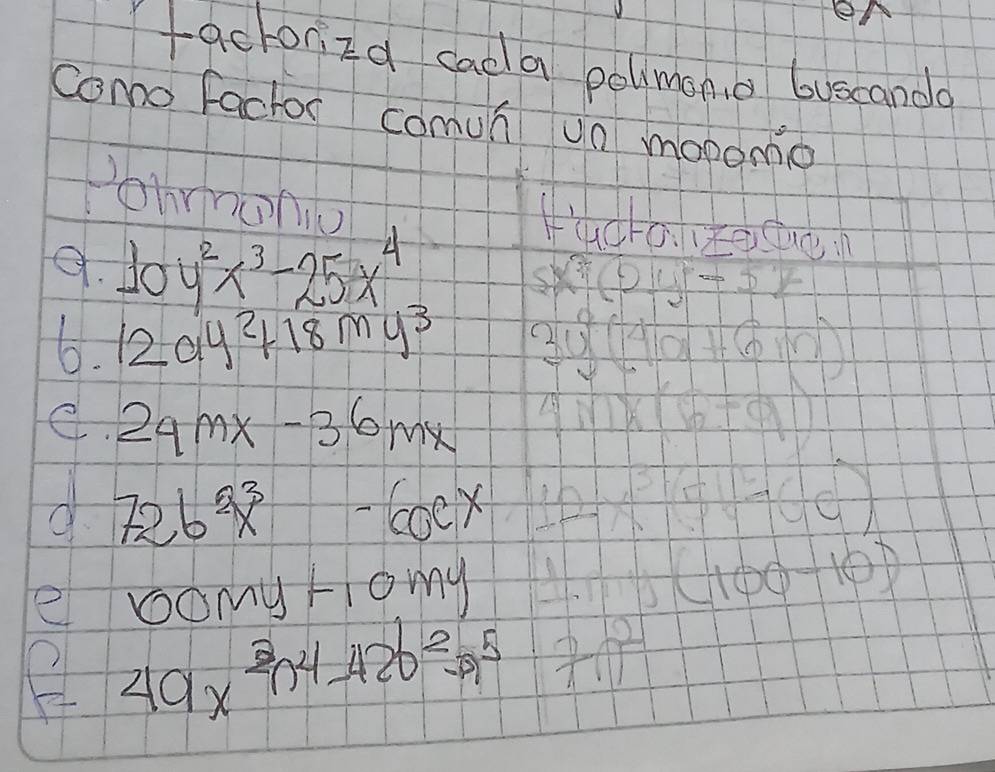 factoriza cada polimonio buscando
como factor comun un monomio
Polinmonio
Factorizacion
a. 10y²x³-25x⁴ 5x³(2y²-5x
b. 12ay²+18my³ 3y²(4a+6m)
c. 24mx -36mx 4mx(6-9)
d. 72b²x³ -60cx
e 100my+10my (100-10)
49x³n⁴-42b²n⁵ 7n²